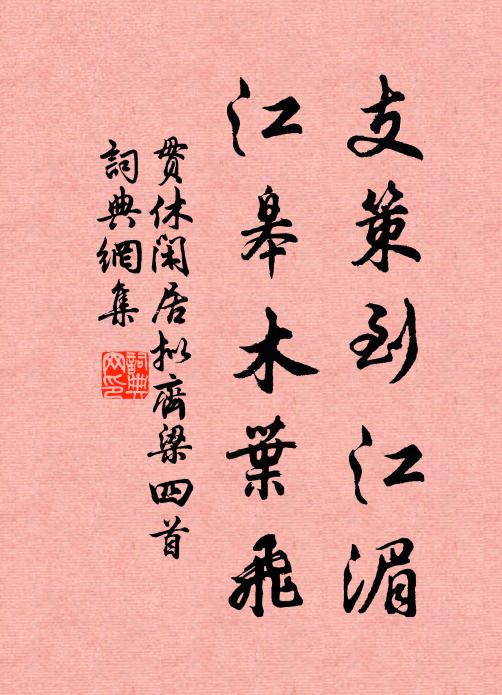 支策到江湄
江皋木葉飛
貫休閑居拟齊梁四首
詞典網集
詞典網印